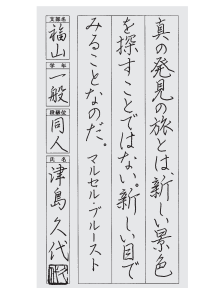 真の発見の旅とは、新しい景色
を探すことではない。新しい目で
みることなのだ。マルセル・プルースト
支部名
福山
学年
一般
段級位
同人
氏名
津島久代